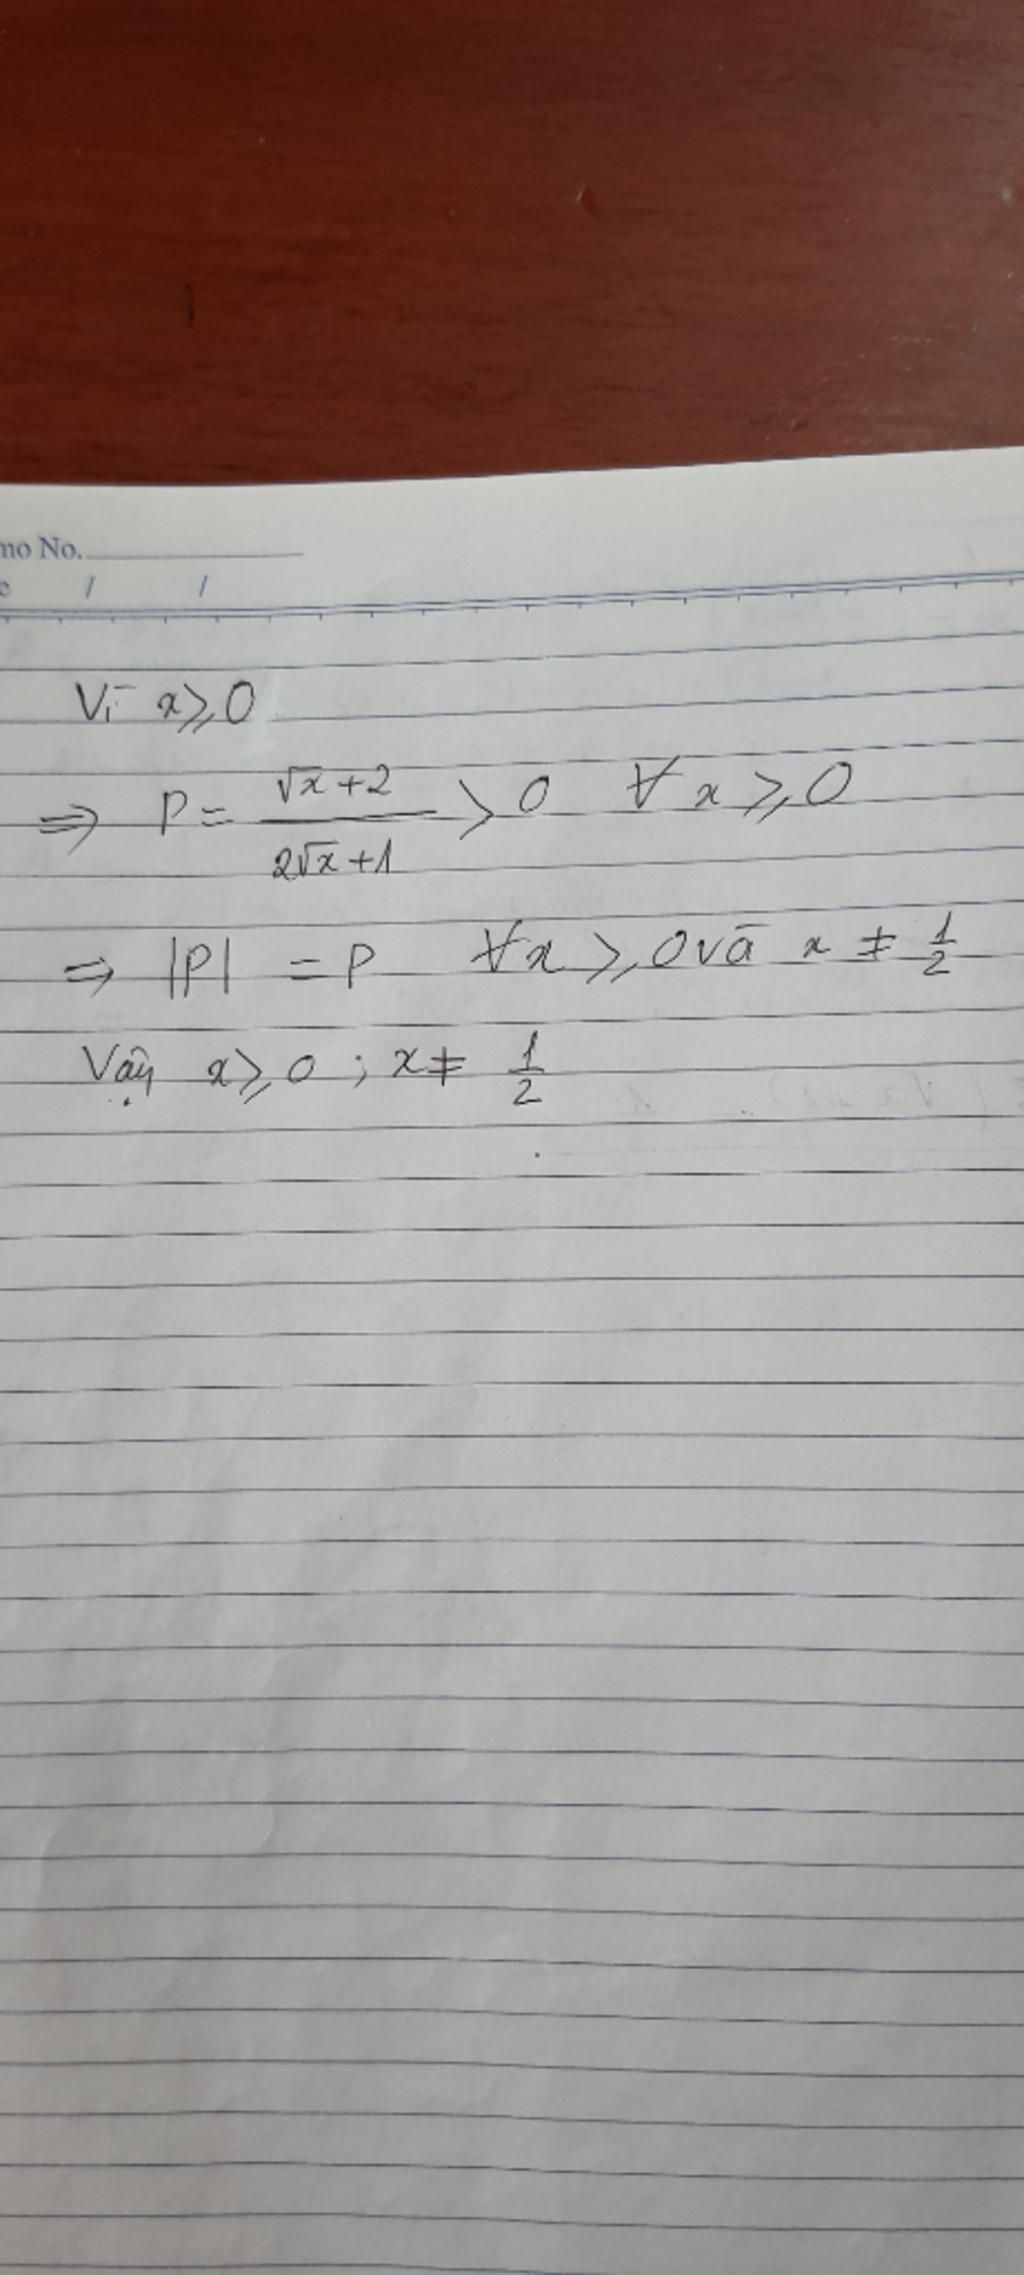 mo No.
e / /
Vì x ≥ 0
⇒ P = (√x + 2)/(2√x + 1) > 0 ∀ x ≥ 0
⇒ |P| = P ∀x ≥ 0 và x ≠ 1/2
Vậy x ≥ 0 ; x ≠ 1/2